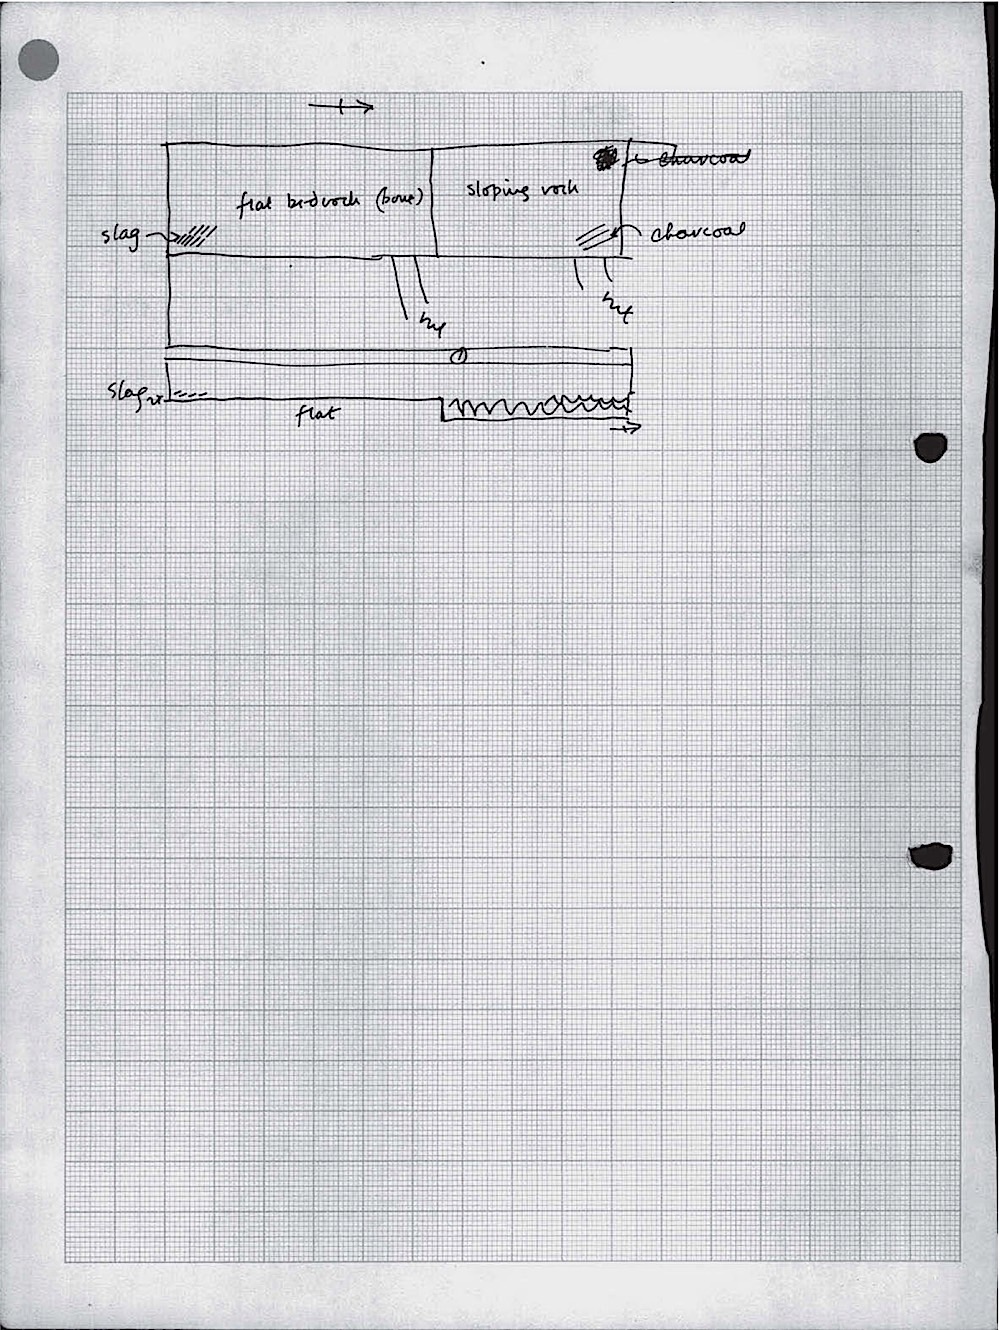 charcoal
flat bedrock (bone)
sloping rock
slag
charcoal
slag
flat